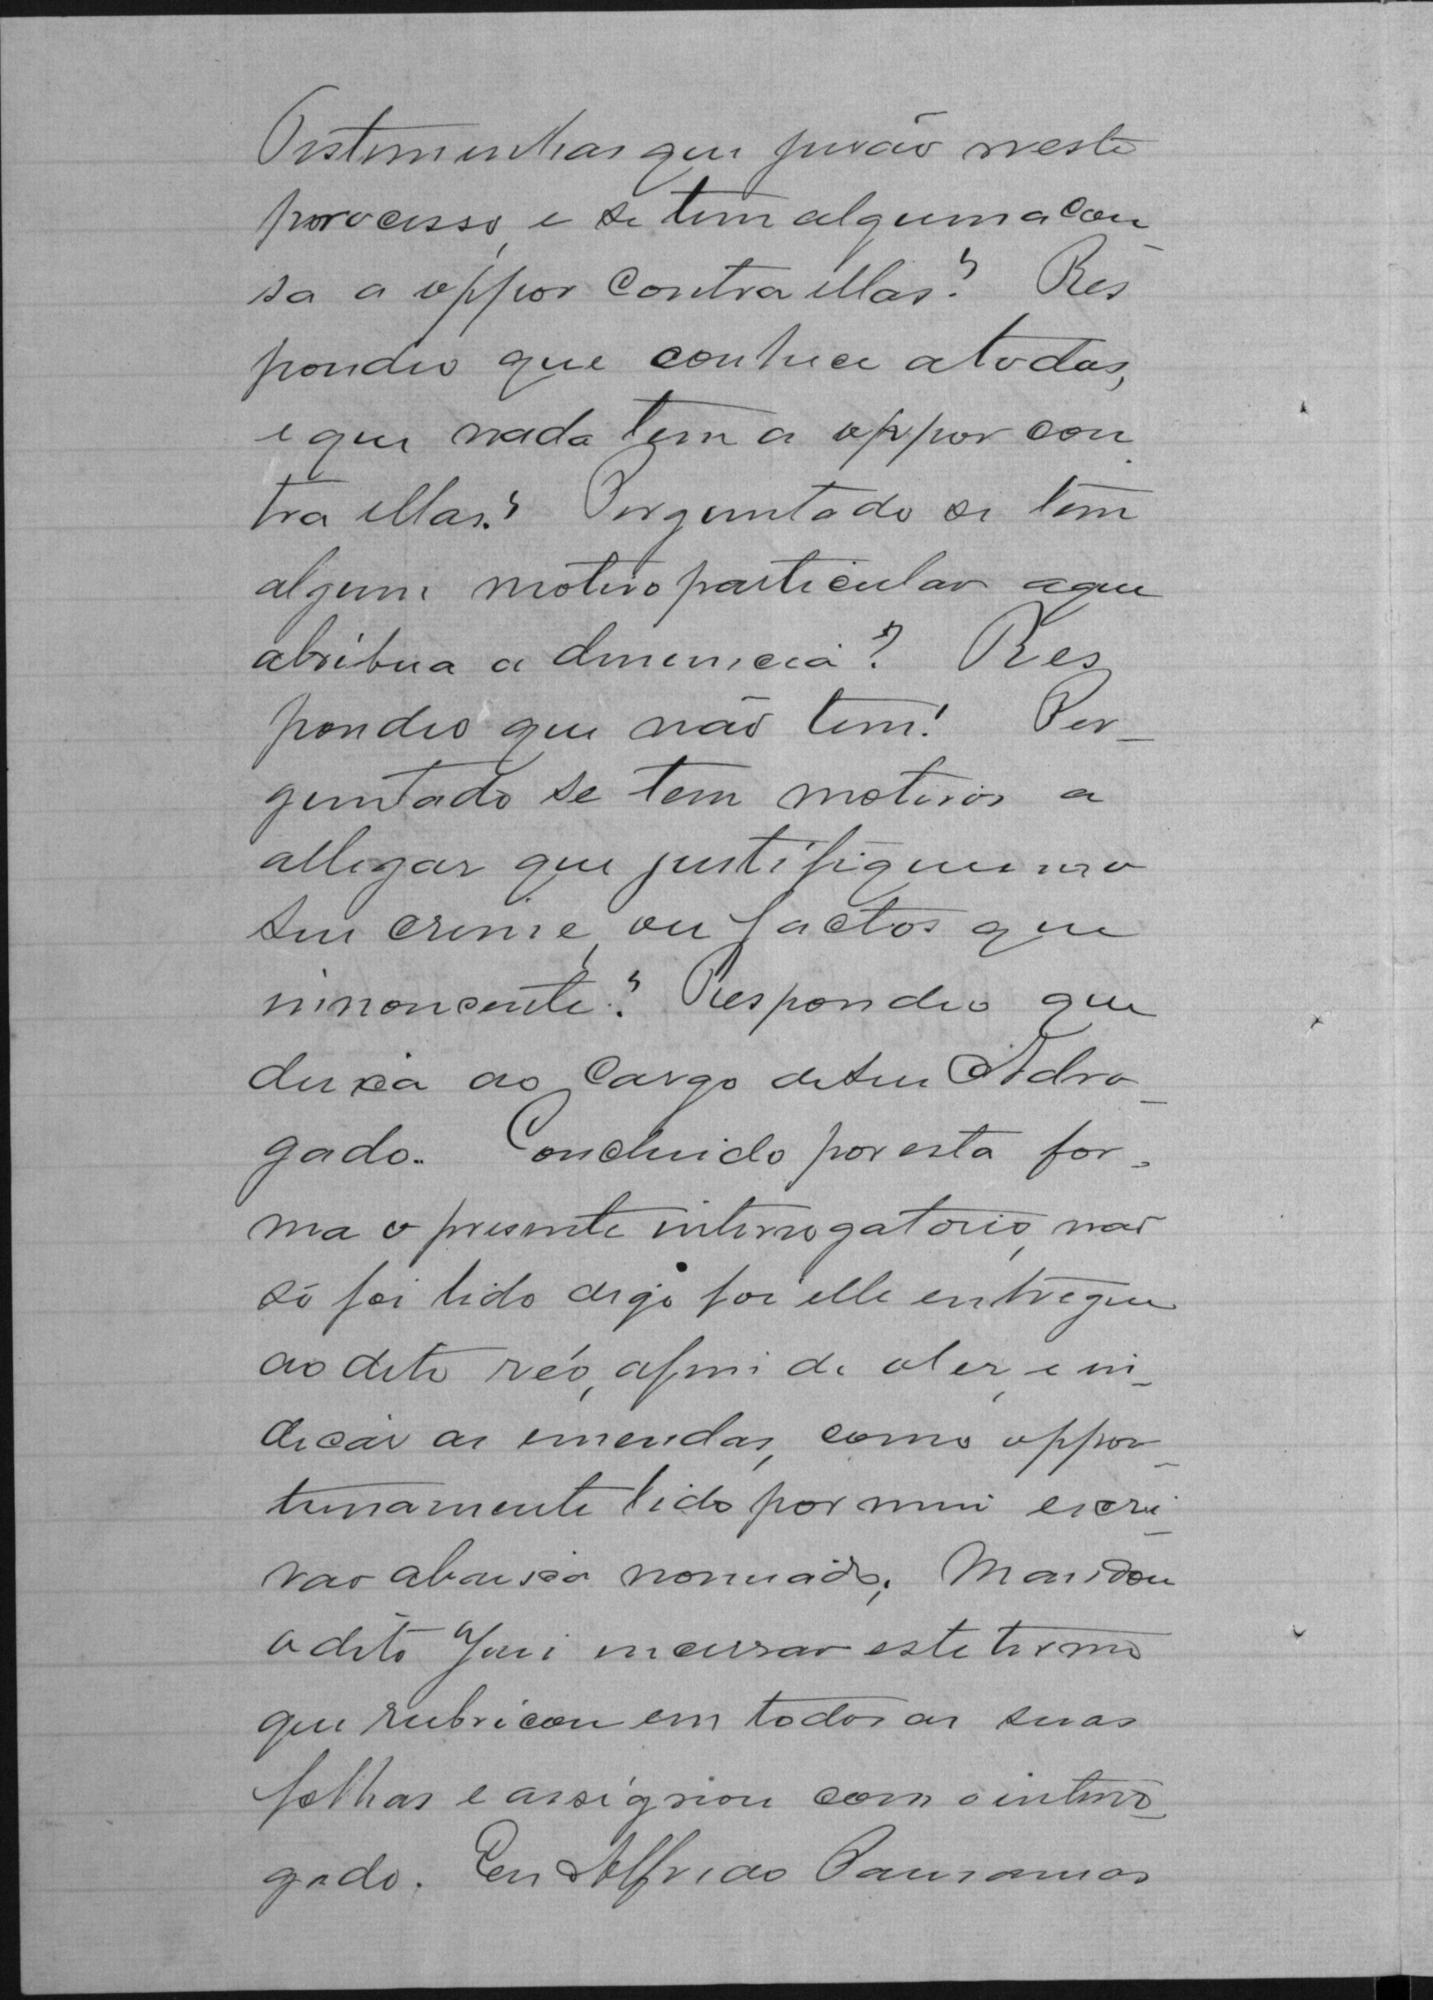 Testemunhas que jurão neste
processo, e se tem alguma cou
sa a oppor contra ellas? Res
pondeo que conhece a todas,
e que nada tem a oppor con
tra ellas? Perguntado se tem
algum motivo particular a que
atribua a denuncia? Res
pondeo que não tem! Per-
guntado se tem motivos a
allegar que justifiquem o
seu crime, ou factos que
innoncente? Respondeo que
deixa ao cargo de seu Advo-
gado. Concluido por esta for-
ma o presente interrogatorio, não
só foi lido digo foi elle entregue
ao dito réo, afim de o ler, e in-
dicar as emendas, como oppor-
tunamente lido por mim escri-
vão abaixo nomeado; Mandou
o dito Juiz encerrar este termo
que rubricou em todas as suas
folhas e assignou com o interro-
gado. Eu Alfredo